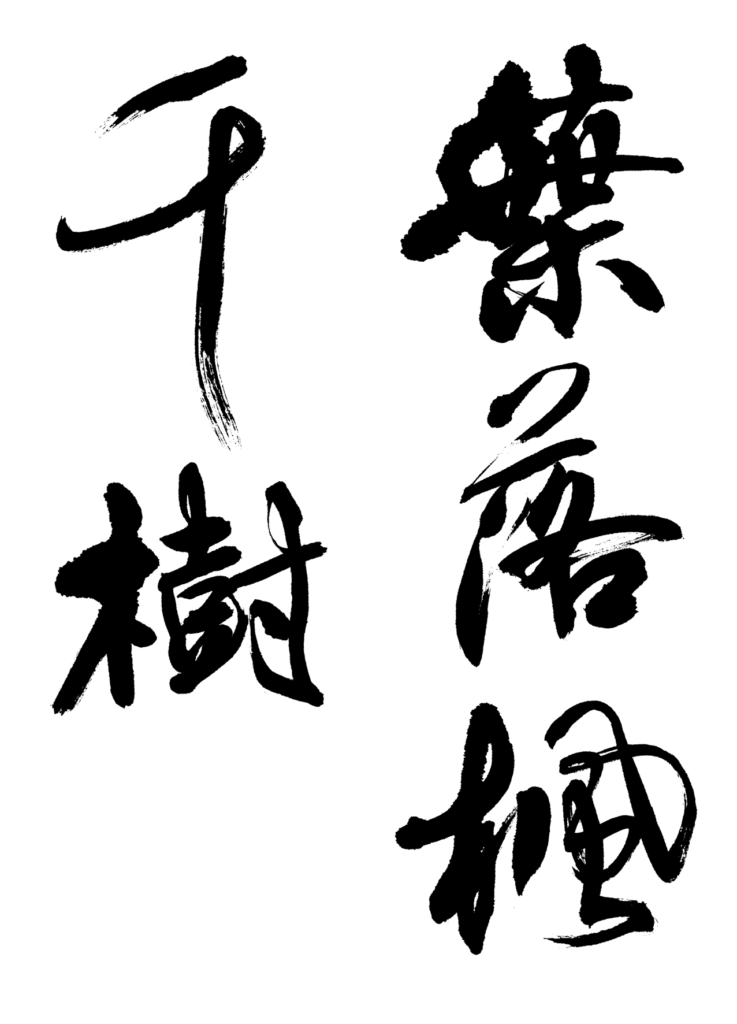 葉落楓
千樹